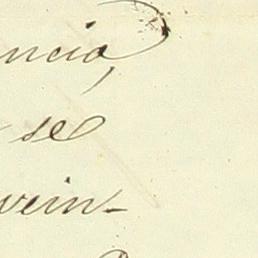 ncia,
se
vein-